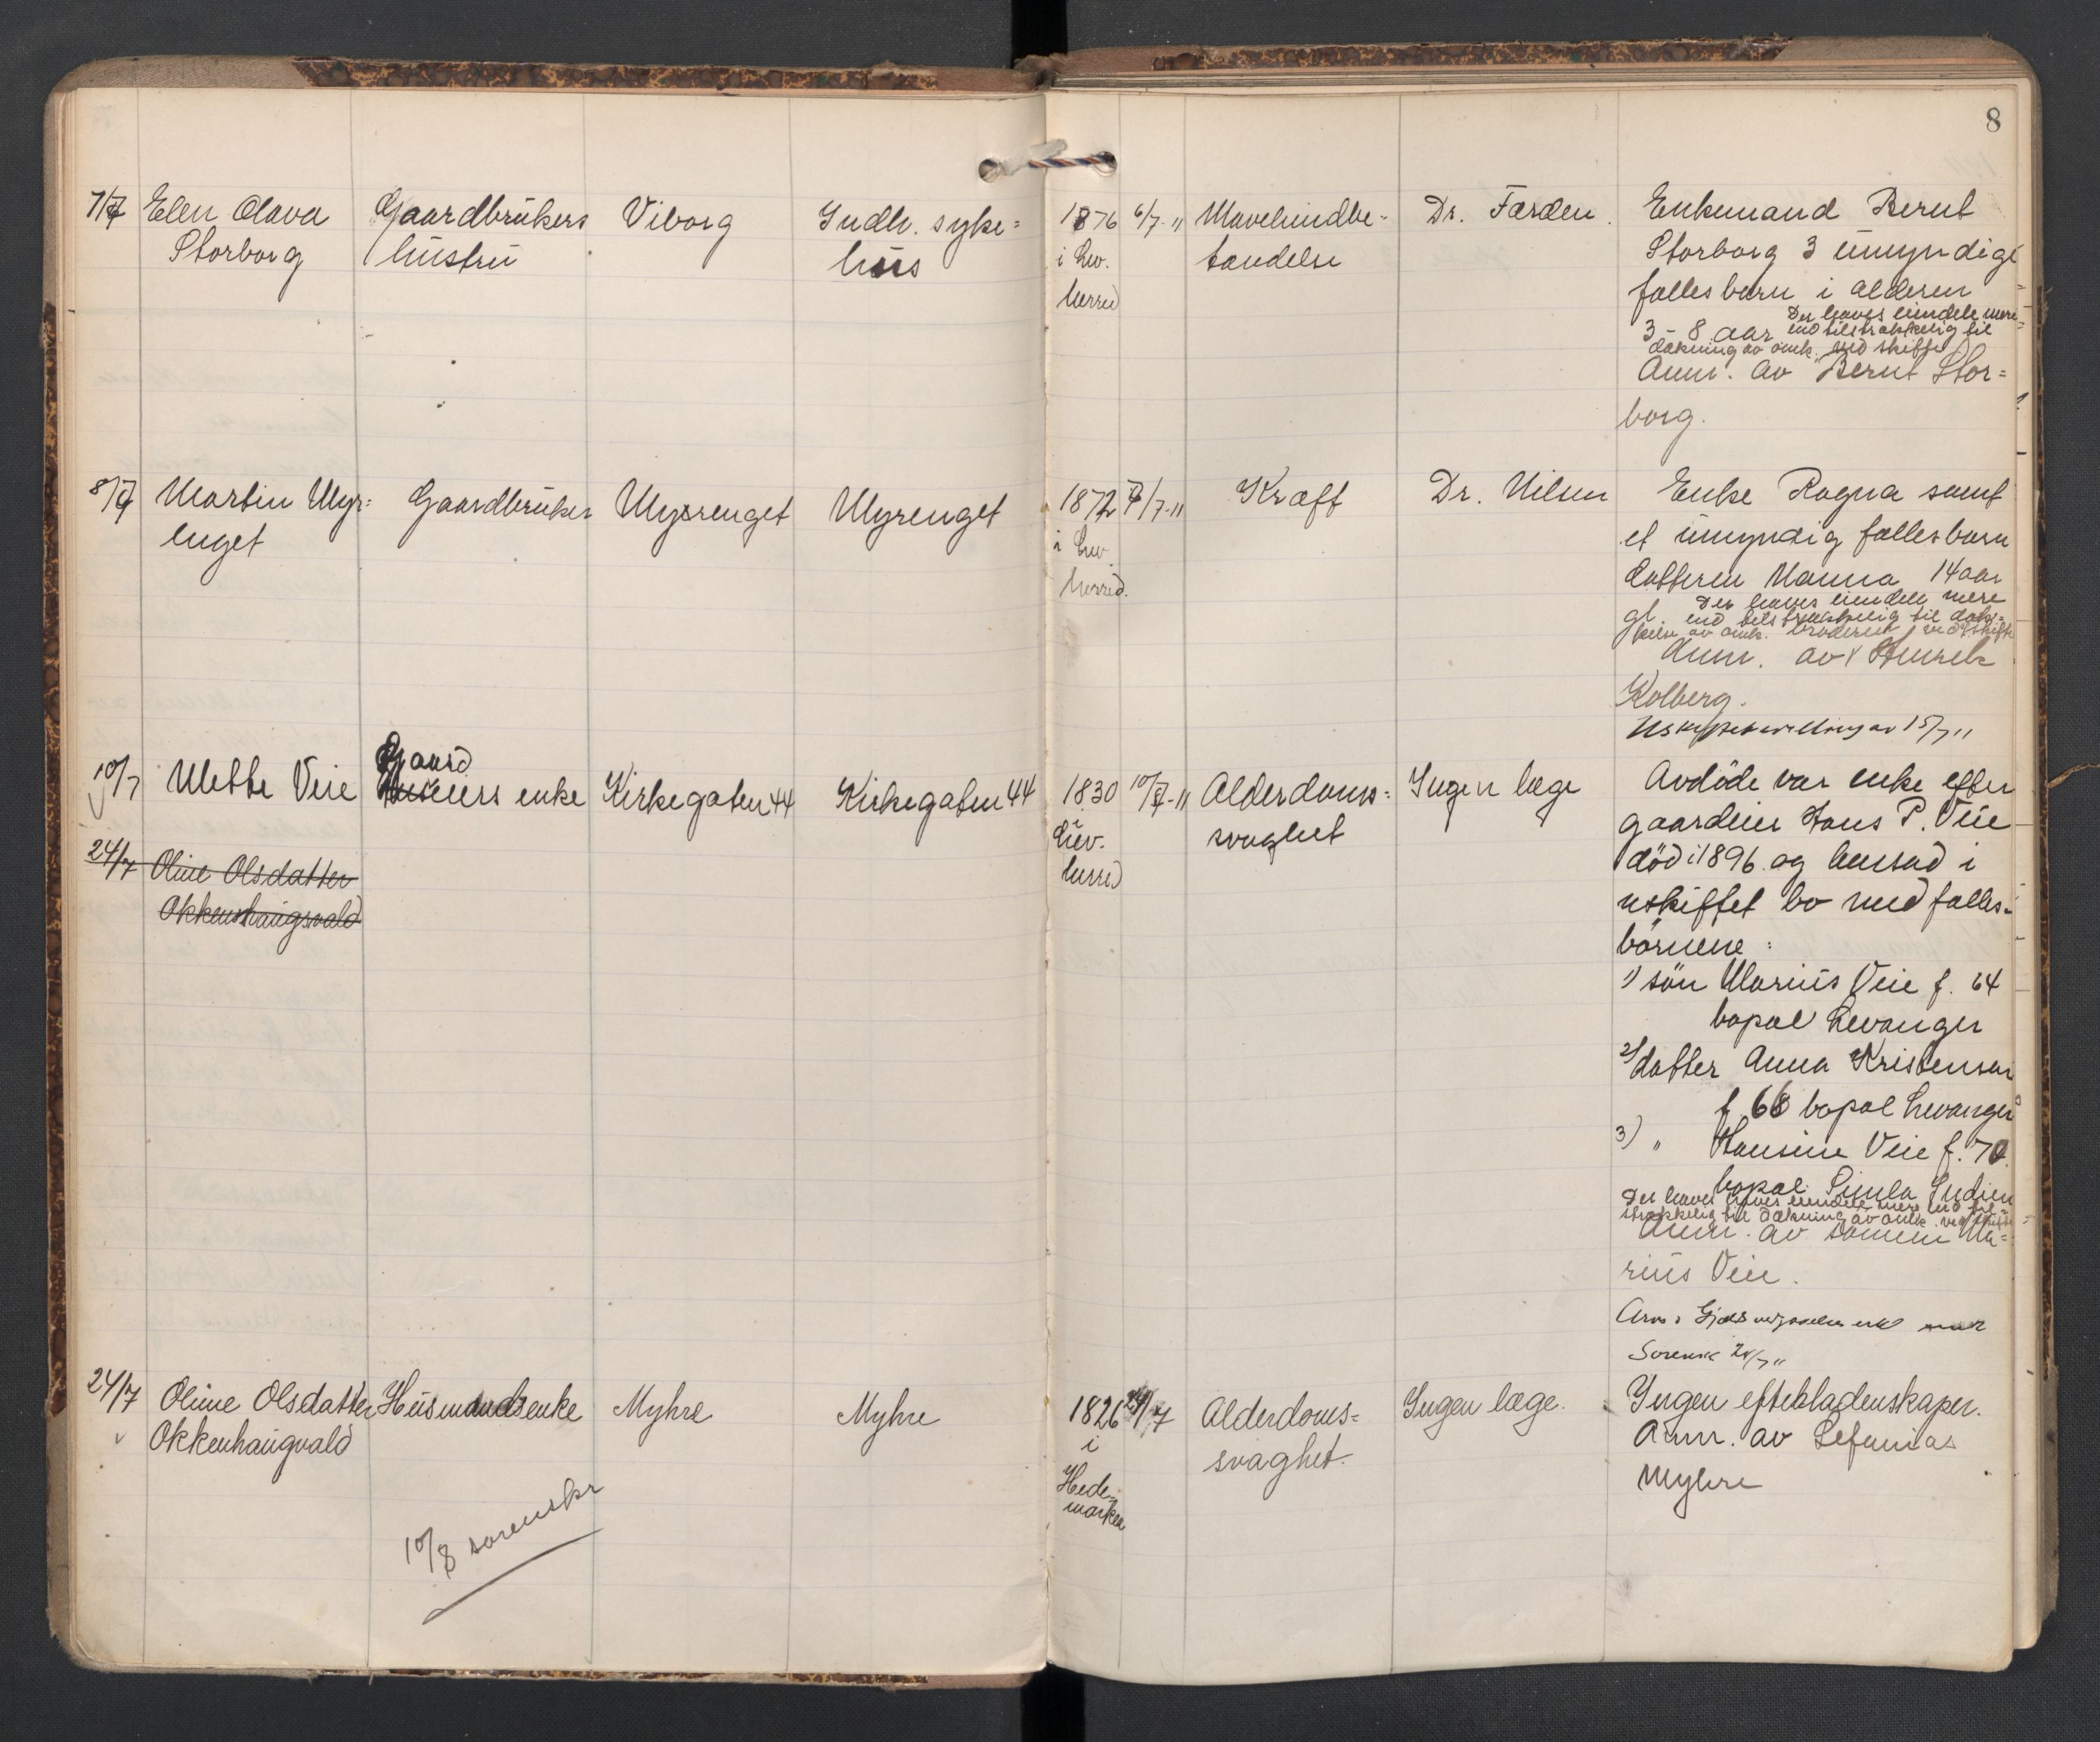 8
7/7 Elen Olava Gaardbrukers Viborg Indh. syke= 1876 6/7-11 Mavehindbe- Dr. Farden. Enkemand Bernt
Storborg hustru hus i Lev. tændelse Storborg 3 umyndige
herred fællesbarn i alderen
3-8 aar Der haves eiendele mere
end tilstrækkelig til
dækning av omk. ved skifte
Anm. av Bernt Stor=
borg.
8/7 Martin Myr= Gaardbruker Myrenget Myrenget 1872 7/7-11 Kræft Dr. Nilsen Enke Ragna samt
enget i Lev. et umyndig fællesbarn
herred. datteren Manna 14 aar
gl. Der haves eiendele mere
end tilstrækkelig til dæk-
kelse av omk. ved skifte
Anm. av broderen Henrik
Kolberg.
Uskiftebevilling av 15/7 11
10/7 Mette Veie Gaard Kirkegaten 44 Kirkegaten 44 1830 10/7-11 Alderdoms= Ingen læge Avdöde var enke efter
eiers enke i svaghet gaardeier Hans P. Veie
24/7 Oline Olsdatter Lev. död i 1896 og hensad i
Okkenhaugsvald herred uskiftet bo med fælles-
börnene:
1) sön Marius Veie f. 64
bopæl Levanger
2) datter Anna Kristensen
f. 68 bopæl Levanger
3) " Hansine Veie f. 70.
bopæl Simla Indien
Der haves eiendele mere end til-
strækkelig til dækning av omk. ved skifte
Anm. av sønnen Ma=
rius Veie.
Sorensk
24/7 Oline Olsdatter Husmandsenke Myhre Myhre 1826 24/7 Alderdoms= Ingen læge. Ingen efterladenskaper.
Okkenhaugvald i svaghet. Anm. av Sefanias
Hede- Myhre
marken
10/8 sorenskr